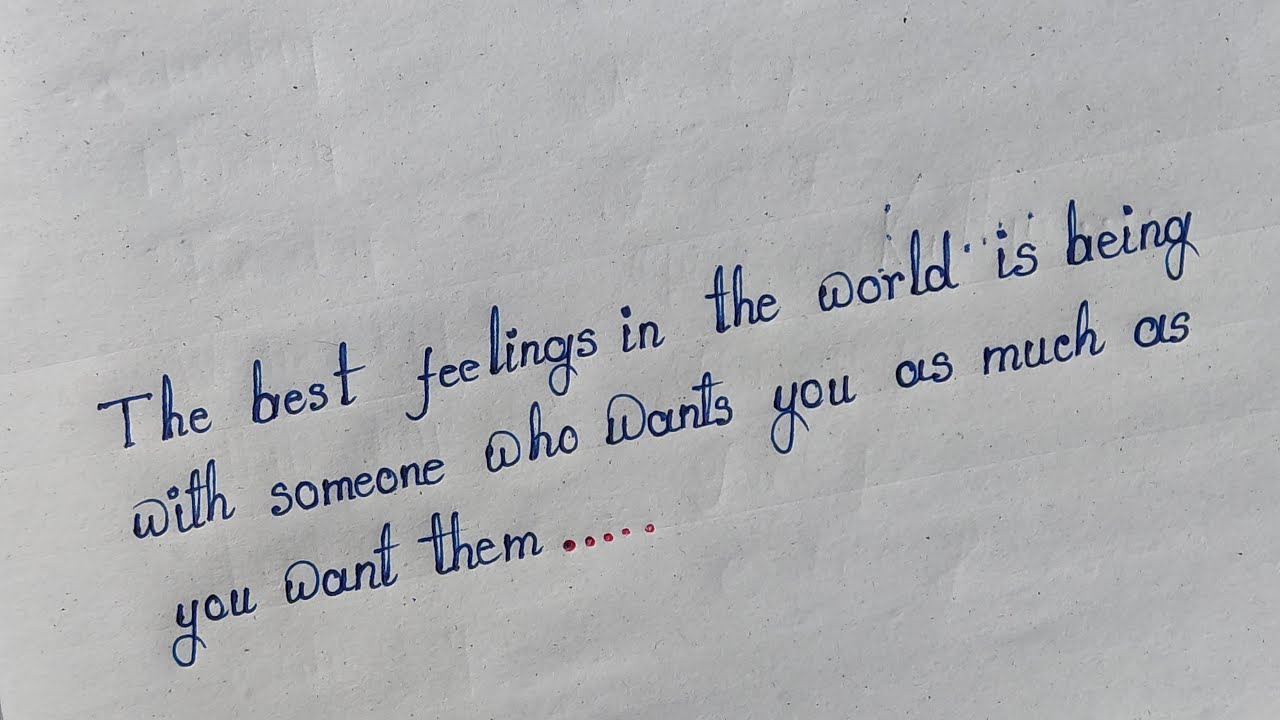 The best feelings in the world is being
with someone who wants you as much as
you want them .....